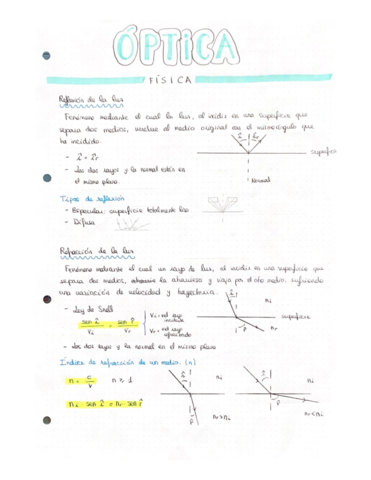 ÓPTICA
FÍSICA
Reflexión de la luz
Fenómeno mediante el cual la luz, al incidir en una superficie que
separa dos medios, vuelve al medio original con el mismo ángulo que
ha incidido.
î îr
- î = îr
superficie
- Los dos rayos y la normal están en
el mismo plano.
Normal
Tipos de reflexión
- Especular: superficie totalmente lisa
- Difusa
Refracción de la luz
Fenómeno mediante el cual un rayo de luz, al incidir en una superficie que
separa dos medios, atraviesa la y viaja por el otro medio, sufriendo
una variación de velocidad y trayectoria.
- Ley de Snell
sen î / vi = sen r̂ / vr
vi = vel rayo incidente
vr = vel rayo refractado
ni
superficie
- Los dos rayos y la normal en el mismo plano
Índice de refracción de un medio. (n)
n = c/v n ≥ 1
ni
ni
ni · sen î = nr · sen r̂
nr > ni
nr < ni